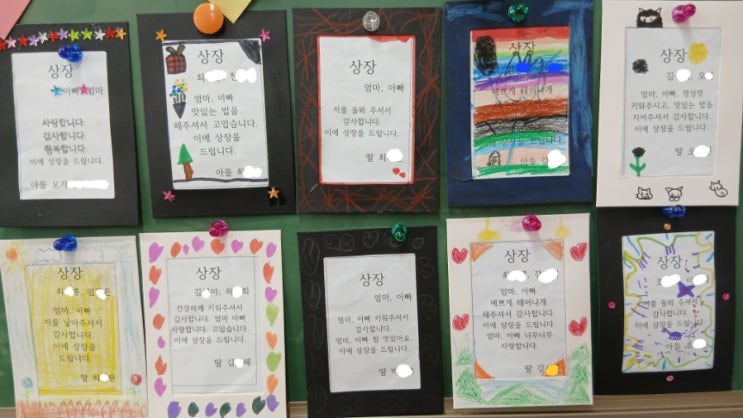 상장
아빠 엄마
사랑합니다.
감사합니다.
행복합니다.
이에 상장을 드립니다.
아들 오
상장
최
엄마, 아빠
맛있는 밥을
해주셔서 고맙습니다.
이에 상장을
드립니다.
아들 최
상장
엄마, 아빠
저를 돌봐 주셔서
감사합니다.
이에 상장을 드립니다.
딸 최
상장
예쁘게 태어나게
드립니다.
아들 김
상장
김
엄마, 아빠, 정성껏
키워주시고, 맛있는 밥을
지어주셔서 감사합니다.
이에 상장을 드립니다.
딸 오
상장
엄마, 아빠
저를 낳아주셔서
감사합니다.
이에 상장을
드립니다.
딸 최
상장
건강하게 키워주셔서
감사합니다. 엄마 아빠
사랑합니다. 고맙습니다.
이에 상장을 드립니다.
딸 김
상장
엄마, 아빠
엄마, 아빠 키워주셔서
감사합니다.
엄마, 아빠 참 멋있어요.
이에 상장을 드립니다.
딸
상장
엄마, 아빠
예쁘게 태어나게
해주셔서 감사합니다.
이에 상장을 드립니다.
엄마, 아빠 너무너무
사랑합니다.
딸
상장
엄마, 아빠
저를 돌봐 주셔서
감사합니다.
이에 상장을 드립니다.
아들